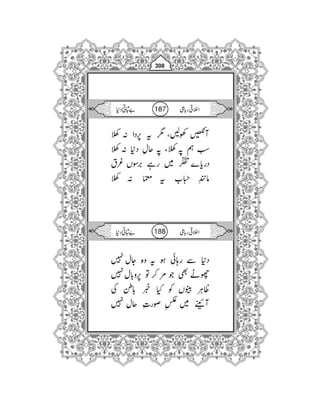 308
اخلاقی رباعی 187 بے ثباتیِ دنیا
آنکھیں کھولیں، مگر یہ پردا نہ کھلا
سب ہم پہ کھلا، پہ حالِ دنیا نہ کھلا
دریائے تفکّر میں رہے برسوں غرق
مانندِ حباب یہ معمّا نہ کھلا
اخلاقی رباعی 188 بے ثباتیِ دنیا
دنیا سے رہائی ہو یہ وہ جال نہیں
چھوٹے بھی جو مر کر تو پر و بال نہیں
ظاہر بینوں کو کیا خبر باطن کی
آئینے میں عکسِ صورتِ حال نہیں